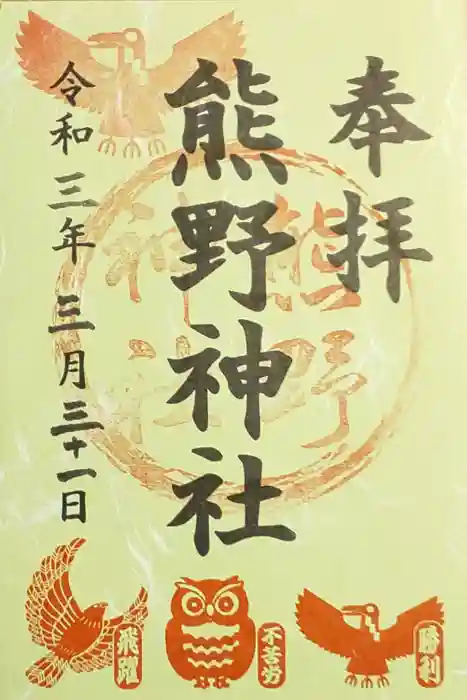 奉拝
熊野神社
熊野
神社
令和三年 三月三十一日
勝利
不苦労
飛躍